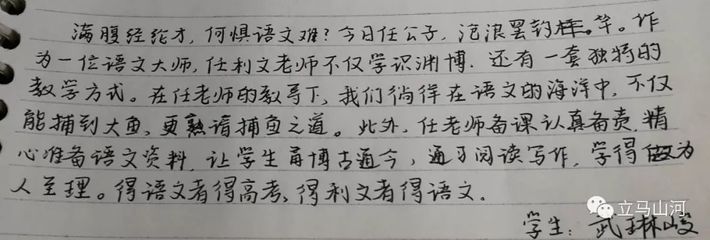 满腹经纶才,何惧语文难?今日任公子,沧浪罢钓竿。作
为一位语文大师,任利文老师不仅学识渊博,还有一套独特的
教学方式。在任老师的教导下,我们徜徉在语文的海洋中,不仅
能捕到大鱼,更熟谙捕鱼之道。此外,任老师备课认真负责,精
心准备语文资料,让学生再博古通今,通习阅读写作,学得做为
人至理。得语文者得高考,得利文者得语文。
学生:武琳峻
立马山河